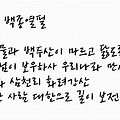 백종열펄
물과 백두산이 마르고 닳도록
님이 보우하사 우리나라 만
화 삼천리 화려강산
한 사람 대한으로 길이 보전